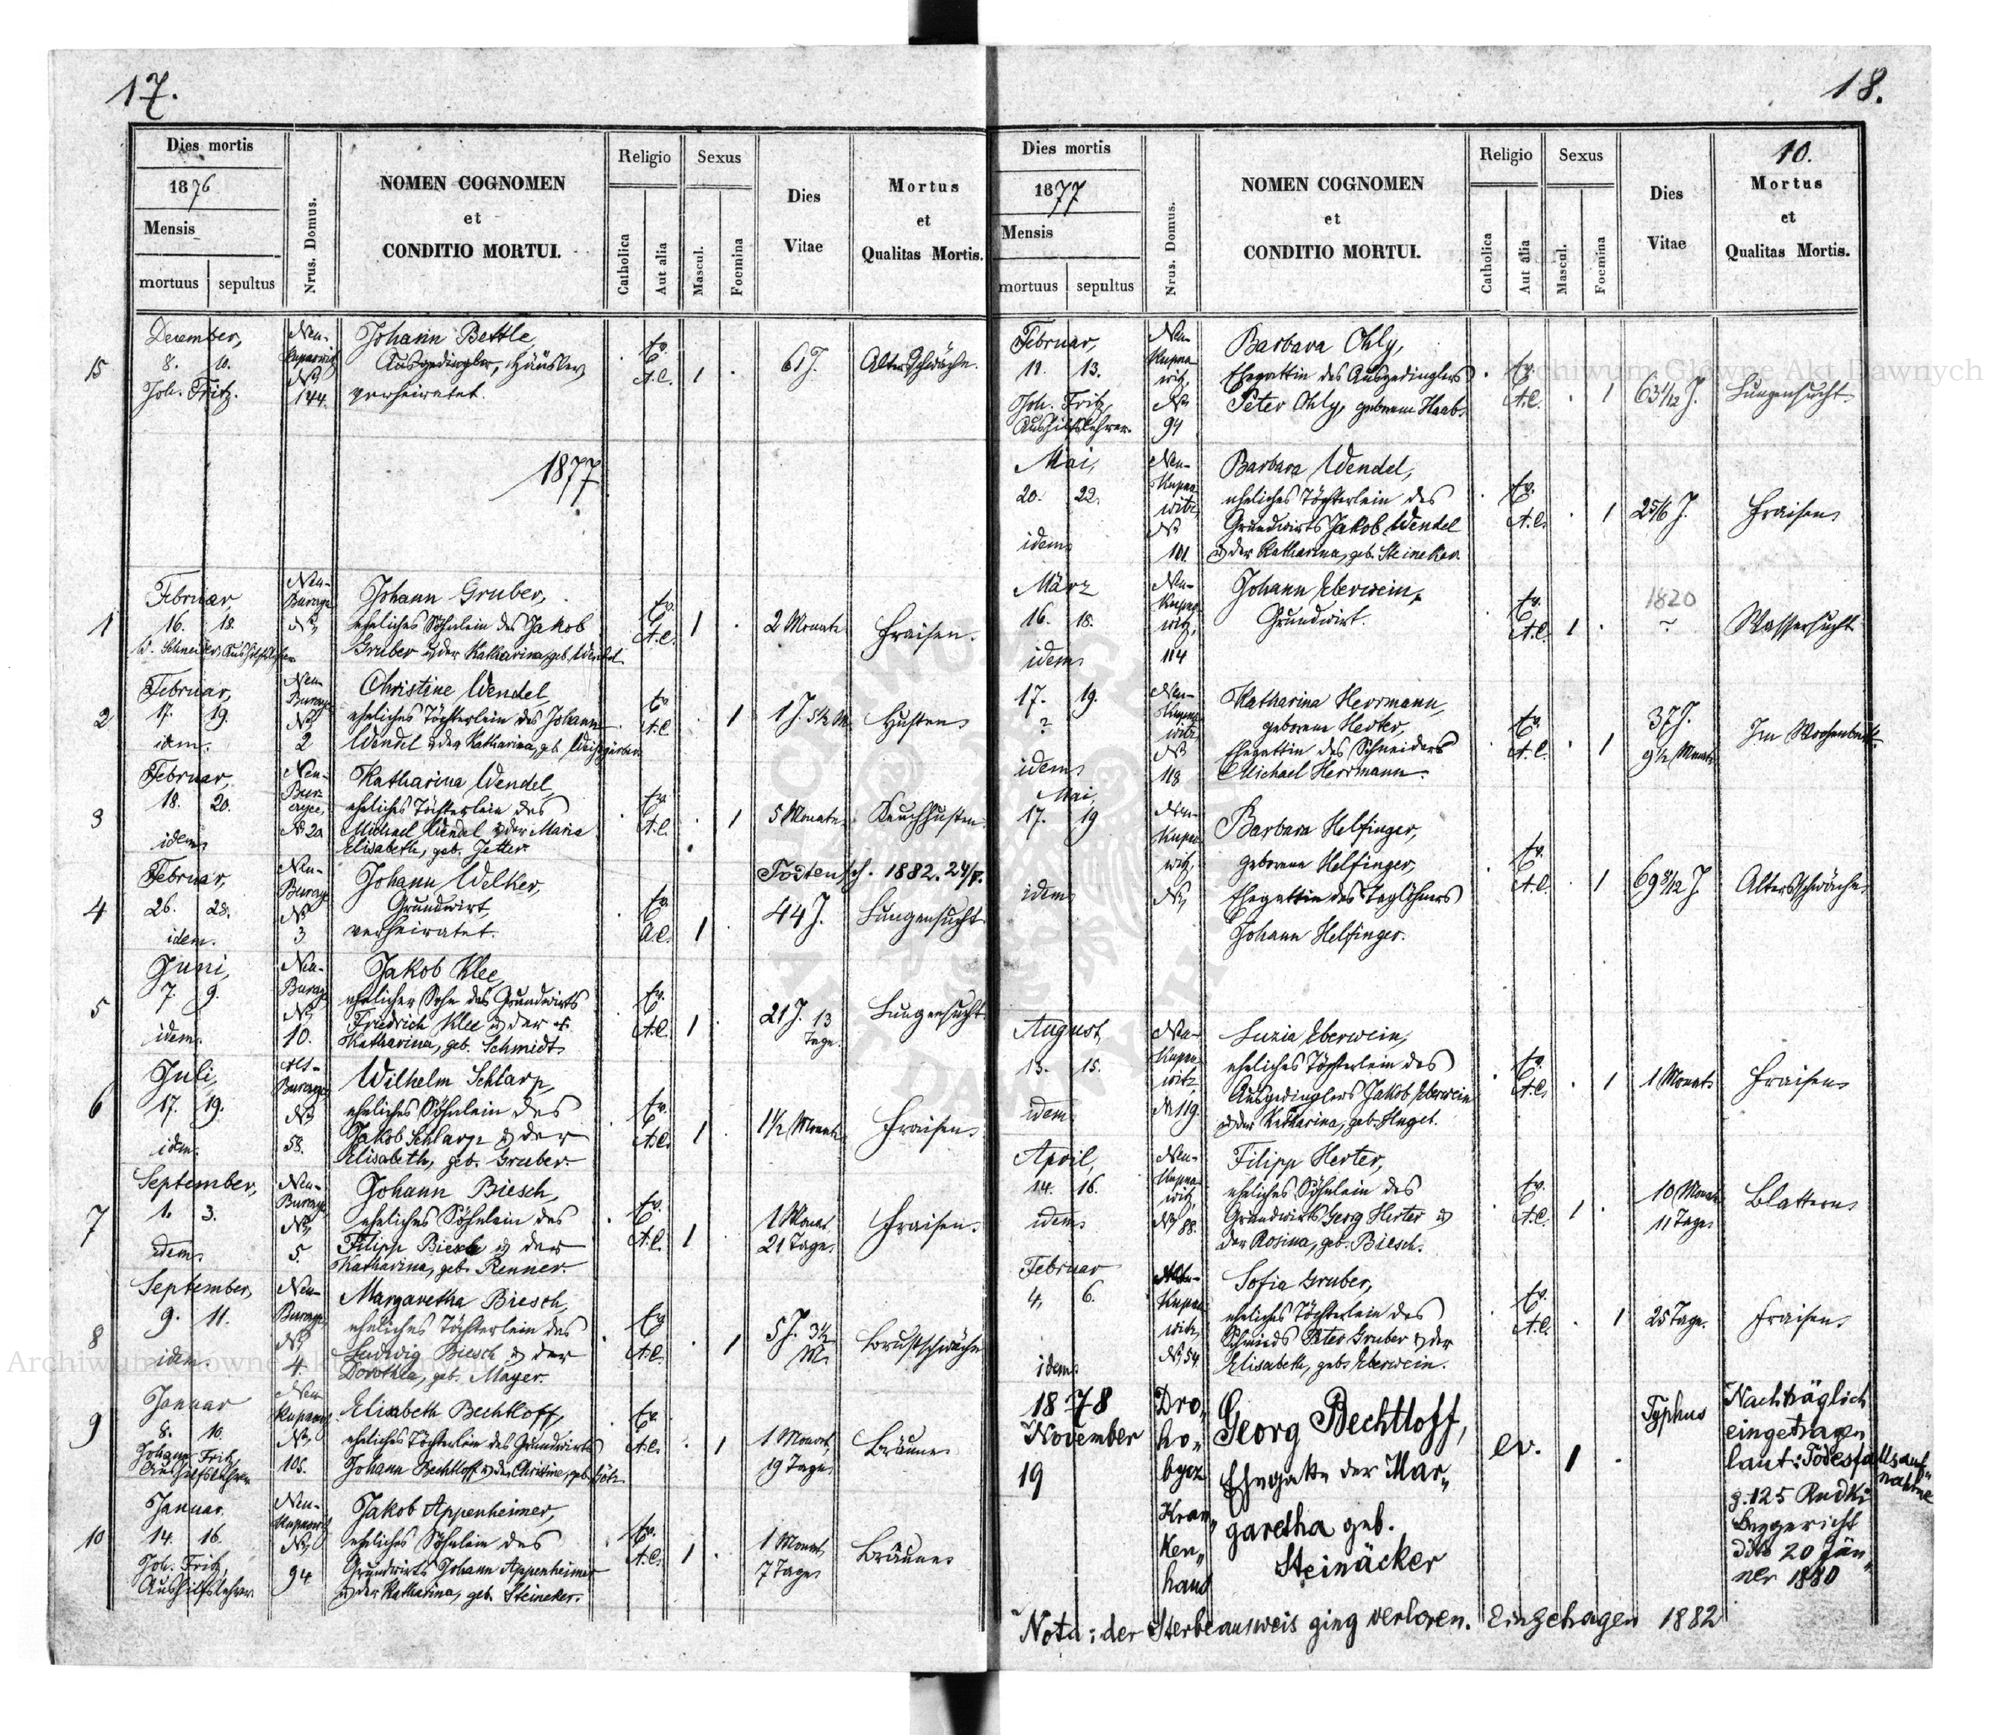 17.
Dies mortis
1876
Mensis
mortuus sepultus
Nrus. Domus.
NOMEN COGNOMEN
et
CONDITIO MORTUI.
Religio
Catholica
Aut alia
Sexus
Mascul.
Foemina
Dies
Vitae
Mortus
et
Qualitas Mortis.
15
December,
8. 10.
Joh. Fritz.
Neu-
Kupnowitz
No
144.
Johann Bettle,
Ausgedingler, Häusler,
verheiratet.
Ev.
A.C.
1
61 J.
Altersschwäche.
1877
1
Februar,
16. 18.
Neu-
Burczyce
No
Johann Gruber,
eheliches Söhnlein des Jakob
Gruber u der Katharina, geb. Wendel
Ev.
A.C.
1
2 Monate
Fraisen.
2
Februar,
17. 19.
idem.
Neu-
No
2
Christine Wendel,
eheliches Töchterlein des Johann
Wendel u der Katharina, geb. Weißgerber
Ev.
A.C.
1
1 J. 5½ M.
Husten
3
Februar,
18. 20.
idem
Neu-
Bur-
czyce,
No 20
Katharina Wendel,
eheliches Töchterlein des
Michael Wendel u der Maria
Elisabeth, geb. Jetter.
Ev.
A.C.
1
5 Monate
Keuchhusten
Todtensch. 1882. 24/V.
4
Februar,
26. 28.
idem.
Neu-
No
3
Johann Welker,
Grundwirt,
verheiratet.
Ev.
A.C.
1
44 J.
Lungensucht
5
Juni,
7. 9.
idem.
Neu-
No
10.
Jakob Klee,
ehelicher Sohn des Grundwirts
Friedrich Klee u der
Katharina, geb. Schmidt
Ev.
A.C.
1
21 J. 13
Tage.
Lungensucht
6
Juli,
17. 19.
idem.
Alt-
No
58.
Wilhelm Schlarp,
eheliches Söhnlein des
Jakob Schlarp u der
Elisabeth, geb. Gruber.
Ev.
A.C.
1
1½ Monate
Fraisen.
7
September,
1. 3.
idem.
Neu-
No
5.
Johann Biesch,
eheliches Söhnlein des
Filipp Biesch u der
Katharina, geb. Renner.
Ev.
A.C.
1
1 Monat
21 Tage.
Fraisen.
8
September,
9. 11.
idem.
Neu-
No
4.
Margaretha Biesch,
eheliches Töchterlein des
Ludwig Biesch u der
Dorothea, geb. Mayer.
Ev.
A.C.
1
5 J. 3½
M.
Brustschwäche
9
Januar
8. 10.
Johann Fritz,
Aushilfslehrer
Neu
No
Elisabeth Bechtloff,
eheliches Töchterlein des Grundwirtes
Johann Bechtloff u der Christine, geb.
Ev.
A.C.
1
1 Monat
19 Tage
Bräune
10
Januar.
14. 16.
Joh. Fritz,
Aushilfslehrer
Neu-
No
94
Jakob Appenheimer,
eheliches Söhnlein des
Grundwirts Johann Appenheimer
u der Katharina, geb. Steineker.
Ev.
A.C.
1
1 Monat
7 Tage
Bräune
18.
Dies mortis
1877
Mensis
mortuus sepultus
Nrus. Domus.
NOMEN COGNOMEN
et
CONDITIO MORTUI.
Religio
Catholica
Aut alia
Sexus
Mascul.
Foemina
Dies
Vitae
10.
Mortus
et
Qualitas Mortis.
Februar,
11. 13.
Joh. Fritz,
Aushilfslehrer.
Neu-
Kupno
witz,
No
94
Barbara Ohly,
Ehegattin des Ausgedinglers
Peter Ohly, geborene Haab.
Ev.
A.C.
1
63 1/12 J.
Lungensucht
Mai,
20. 22.
idem
Neu-
Kupno
witz,
No
101.
Barbara Wendel,
eheliches Töchterlein des
Grundwirts Jakob Wendel
u der Katharina, geb. Steineker.
Ev.
A.C.
1
2 5/6 J.
Fraisen
März
16. 18.
idem
Neu-
Kupno
witz,
114
Johann Eberwein,
Grundwirt.
Ev.
A.C.
1
1820
Wassersucht
17. 19.
?
idem
Neu-
No
118
Katharina Herrmann,
geborene Herter,
Ehegattin des Schneiders
Michael Herrmann.
Ev.
A.C.
1
37 J.
9½ Monat
Im Wochenbett
Mai,
17. 19
idem
Neu-
Kupno
witz,
No
Barbara Helfinger,
geborene Helfinger,
Ehegattin des Taglöhners
Johann Helfinger.
Ev.
A.C.
1
69 8/12 J.
Altersschwäche
August,
13. 15.
idem
Neu-
Kupno
witz,
No 119.
Luzia Eberwein,
eheliches Töchterlein des
Ausgedinglers Jakob Eberwein
u der Katharina, geb. Huget.
Ev.
A.C.
1
1 Monat
Fraisen
April,
14. 16.
idem
Neu-
Kupno
witz,
No 88.
Filipp Herter,
eheliches Söhnlein des
Grundwirts Georg Herter u
der Rosina, geb. Biesch.
Ev.
A.C.
1
10 Monat
11 Tage
Blattern
Februar
4. 6.
idem
Kupno
witz,
No 54.
Sofia Gruber,
eheliches Töchterlein des
Schmieds Peter Gruber u der
Elisabeth, geb. Eberwein.
Ev.
A.C.
1
25 Tage.
Fraisen.
1878
November
19
Dro,
ho„
bycz
Kran„
ken„
haus
Georg Bechtloff,
Ehegatte der Mar„
garetha geb.
Steinäcker
ev.
1
Typhus
Nachträglich
eingetragen
laut: Todesfallsauf„
nahme
z. 125 Rudki
Bezgericht
dto 20 Jän„
ner 1880
Nota: der Sterbeausweis ging verloren. Eingetragen 1882
Archiwum Główne Akt Dawnych
Archiwum Główne Akt Dawnych